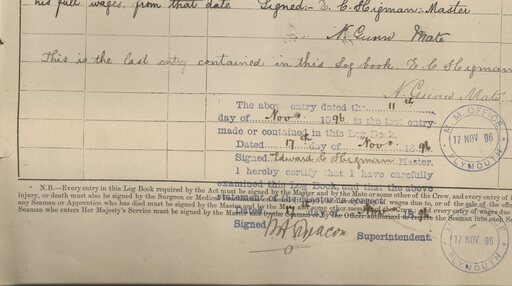 his full wages, from that date Signed:- E. C. Stigman:- Master
N. Gunn Mate
This is the last entry contained in this Log book. E. C. Stigman
N. Gunn Mate
The above entry dated the 11th
day of Novr 1896 is the last entry
made or contained in this Log Book
Dated 17th day of Novr 1896
Signed Edward C Stigman Master.
I hereby certify that I have carefully
examined this Log Book and that the above
statement of the Master is correct
Dated 17th day of Novr 1896
Signed Deacon Superintendent.
N.B—Every entry in this Log Book required by the Act must be signed by the Master and by the Mate or some other of the Crew, and every entry of i
injury, or death must also be signed by the Surgeon or Medical wages due to, or of the sale of the effe
any Seaman or Apprentice who has died must be signed by the Master and by the Mate some other member of the Crew, and every entry of wages due
Seaman who enters Her Majesty's Service must be signed by the Master
M. M. OFFICE
17 NOV 96
PLYMOUTH
M. M. OFFICE
17 NOV 96
PLYMOUTH